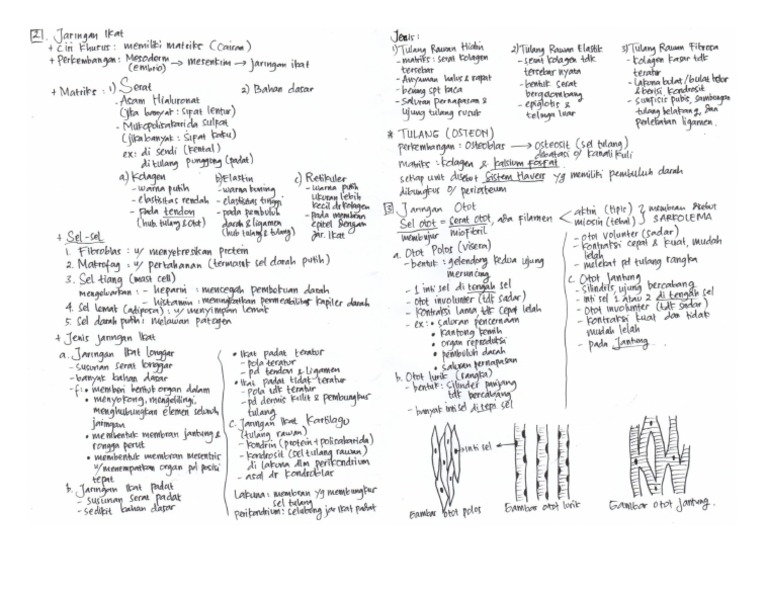 2. Jaringan Ikat
+ Ciri khusus : memiliki matriks (cairan)
+ Perkembangan : Mesoderm → mesenkim → jaringan ikat
(embrio)
+ Matriks : 1) Serat 2) Bahan dasar
- Asam Hialuronat
(jika banyak : sifat lentur)
- Mukopolisakarida sulfat
(jika banyak : sifat kaku)
ex : di sendi (kental)
di tulang punggung (padat)
a) Kolagen
- warna putih
- elastisitas rendah
- pada tendon
(hub tulang & otot)
b) Elastin
- warna kuning
- elastisitas tinggi
- pada pembuluh
darah & ligamen
(hub tulang & tulang)
c) Retikuler
- warna putih
ukuran lebih
kecil dr kolagen
- pada membran
epitel dengan
jar. ikat
+ Sel-sel
1. Fibroblas : u/ menyekresikan protein
2. Makrofag : u/ pertahanan (termasuk sel darah putih)
3. Sel tiang (mast cell)
mengeluarkan : - heparin : mencegah pembekuan darah
- histamin : meningkatkan permeabilitas kapiler darah
4. Sel lemak (adiposa) : u/ menyimpan lemak
5. Sel darah putih : melawan patogen
+ Jenis jaringan ikat
a. Jaringan Ikat longgar
- susunan serat longgar
- banyak bahan dasar
- f : • memberi bentuk organ dalam
• menyokong, mengelilingi,
menghubungkan elemen seluruh
jaringan
• membentuk membran jantung &
rongga perut
• membentuk membran mesentris
u/ menempatkan organ pd posisi
tepat
b. Jaringan ikat padat
- susunan serat padat
- sedikit bahan dasar
• Ikat padat teratur
- pola teratur
- pd tendon & ligamen
• Ikat padat tidak teratur
- pola tdk teratur
- pd dermis kulit & pembungkus
tulang
c. Jaringan Ikat Kartilago
(tulang rawan)
- kondrin (protein + polisakarida)
- kondrosit (sel tulang rawan)
di lakuna dlm perikondrium
- asal dr kondroblas
Lakuna : membran yg membungkus
sel tulang
perikondrium : selubung jar ikat padat
Jenis :
1) Tulang Rawan Hialin
- matriks : serat kolagen
tersebar
- Anyaman halus & rapat
- bening spt kaca
- Saluran pernapasan &
ujung tulang rusuk
2) Tulang Rawan Elastik
- serat kolagen tdk
tersebar nyata
- bentuk serat
bergelombang
- epiglotis &
telinga luar
3) Tulang Rawan Fibrosa
- kolagen kasar tdk
teratur
- lakuna bulat / bulat telur
& berisi kondrosit
- simfisis pubis, sambungan
tulang belakang, dan
perlekatan ligamen.
* TULANG (OSTEON)
perkembangan : Osteoblas → osteosit (sel tulang)
dibatasi o/ kanalikuli
matriks : kolagen & kalsium fosfat.
setiap unit disebut Sistem Havers yg memiliki pembuluh darah
dibungkus o/ periosteum
3. Jaringan Otot
Sel otot = serat otot, ada filamen < aktin (tipis) } membran plasma
membujur miofibril miosin (tebal) SARKOLEMA
a. Otot Polos (Visera)
- bentuk : gelendong kedua ujung
meruncing
- 1 inti sel di tengah sel
- otot involunter (tdk sadar)
- kontraksi lama tdk cepat lelah
- ex : • saluran pencernaan
• kantong kemih
• organ reproduksi
• pembuluh darah
• saluran pernapasan
b. Otot lurik (rangka)
- bentuk : silinder panjang
tdk bercabang
- banyak inti sel di tepi sel
- otot volunter (sadar)
- kontraksi cepat & kuat, mudah
lelah
- melekat pd tulang rangka
c. Otot Jantung
- silindris ujung bercabang
- inti sel 1 atau 2 di tengah sel
- Otot involunter (tdk sadar)
- kontraksi kuat dan tidak
mudah lelah
- pada Jantung
inti sel
Gambar otot polos
Gambar otot lurik
Gambar otot jantung.